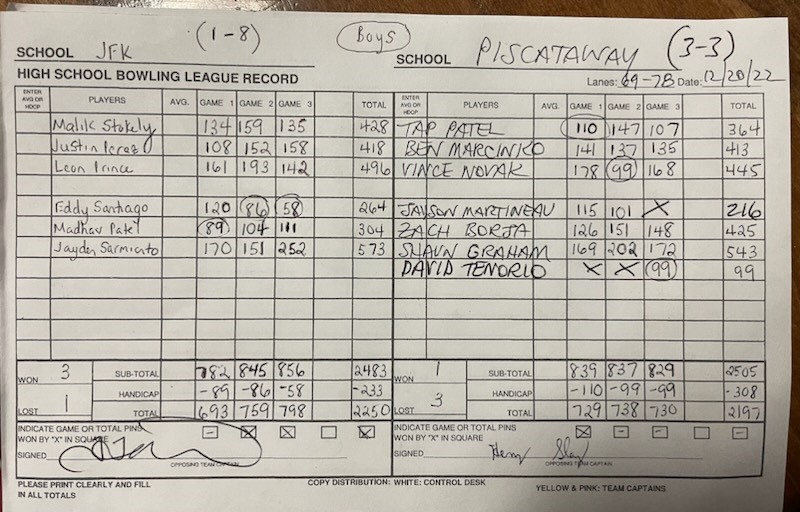 SCHOOL JFK (1-8) Boys SCHOOL PISCATAWAY (3-3)
HIGH SCHOOL BOWLING LEAGUE RECORD Lanes: 69-78 Date: 12/20/22
ENTER AVG OR HDCP PLAYERS AVG. GAME 1 GAME 2 GAME 3 TOTAL ENTER AVG OR HDCP PLAYERS AVG. GAME 1 GAME 2 GAME 3 TOTAL
Malik Stokely 134 159 135 428 TAP PATEL 110 147 107 364
Justin Perez 108 152 158 418 BEN MARCINKO 141 137 135 413
Leon Prince 161 193 142 496 VINCE NOVAK 178 99 168 445
Eddy Santiago 120 86 58 264 JAYSON MARTINEAU 115 101 X 216
Madhav Patel 89 104 111 304 ZACH BORJA 126 151 148 425
Jayden Sarmiento 170 151 252 573 SHAUN GRAHAM 169 202 172 543
DAVID TENORIO X X 99 99
WON 3 SUB-TOTAL 782 845 856 2483 WON 1 SUB-TOTAL 839 837 829 2505
HANDICAP -89 -86 -58 -233 HANDICAP -110 -99 -99 -308
LOST 1 TOTAL 693 759 798 2250 LOST 3 TOTAL 729 738 730 2197
INDICATE GAME OR TOTAL PINS WON BY "X" IN SQUARE - X X X INDICATE GAME OR TOTAL PINS WON BY "X" IN SQUARE X - - -
SIGNED OPPOSING TEAM CAPTAIN SIGNED OPPOSING TEAM CAPTAIN
PLEASE PRINT CLEARLY AND FILL IN ALL TOTALS COPY DISTRIBUTION: WHITE: CONTROL DESK YELLOW & PINK: TEAM CAPTAINS